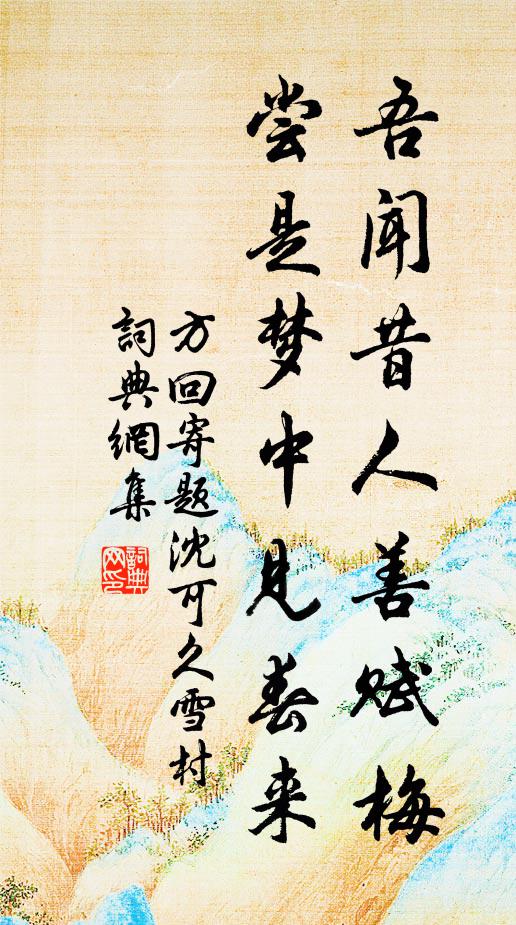 吾闻昔人善赋梅
尝是梦中见春来
方回寄题沈可久雪村
詞典網集
詞典网印